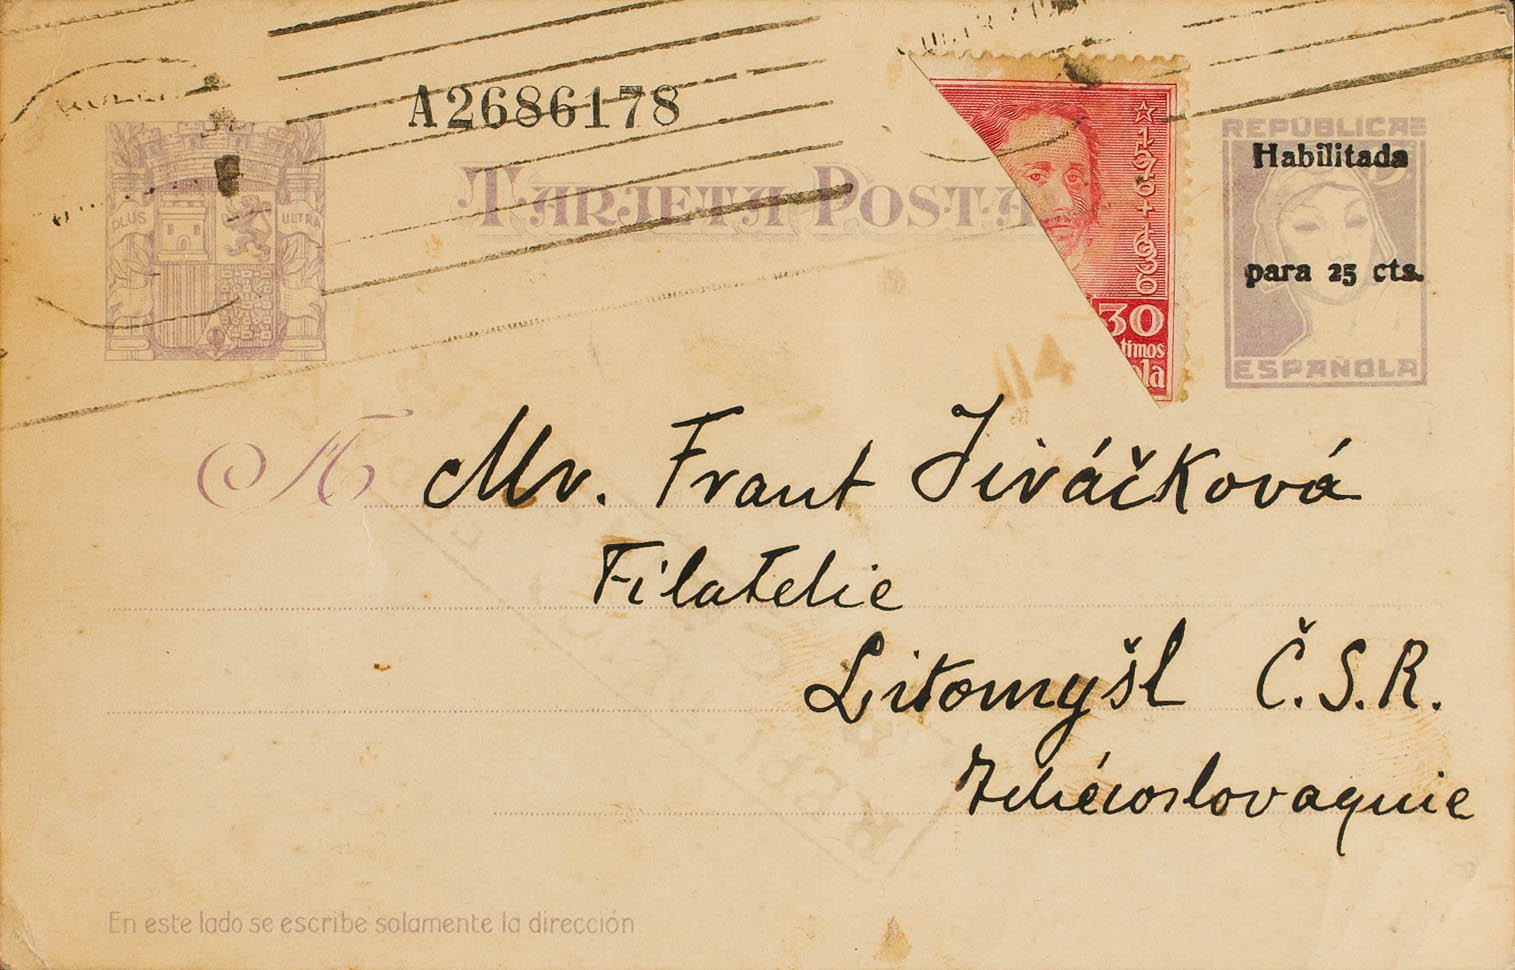 A2686178
TARJETA POSTA
PLUS
ULTRA
1376+1936
30
timos
ola
REPÚBLICA
Habilitada
para 25 cts.
ESPAÑOLA
A
114
Mr. Frant Jiráčková
Filatelie
Litomyšl Č.S.R.
Tchécoslovaquie
En este lado se escribe solamente la dirección